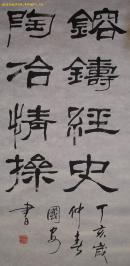 鎔鑄經史
陶冶情操
丁亥歲
仲春
國安
書